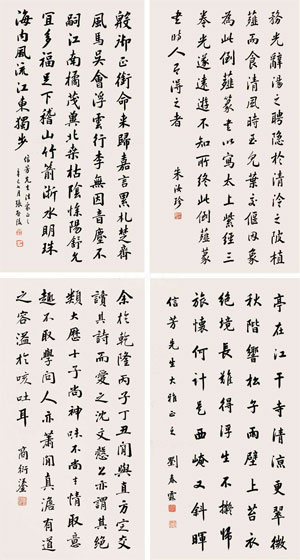 務光辭湯之聘隱於清泠之陂植
薤而食清風時至見葉交偃因象
為此倒薤篆書以寫太上紫經三
卷光遂遠遊不知所終此倒薤
書時人莫得之者
朱汝珍
殷御正銜命來歸嘉言札楚齊
風馬吳會浮雲行李無因音塵不
嗣江南橘茂冀北桑枯陰慘陽舒允
宜多福足下稽山竹箭浙水明珠
海內風流江東獨步
信芳先生法家正之
張啟後
亭在江干寺清涼更翠微
秋階響松子雨壁上苔衣
絕境長難得浮生不擬歸
旅懷何計是西崦又斜暉
信芳先生大雅正之
劉春霖
余於乾隆丙子丁丑間與直方定交
讀其詩而愛之沈文慤公亦謂其絕
類大歷十子尚神味不尚才情取意
趣不取學問人亦蕭閒真澹有道
之容溢於咳吐耳
商衍鎏